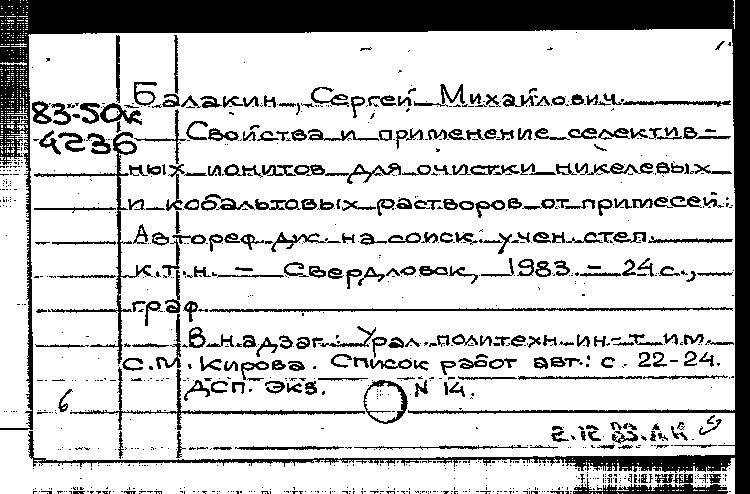 Балакин, Сергей Михайлович.
83-50к
4236
Свойства и применение селектив-
ных ионитов для очистки никелевых
и кобальтовых растворов от примесей:
Автореф. дис. на соиск. учен. степ.
к.т.н. - Свердловск, 1983. - 24 с.,
граф
В надзаг.: Урал. политехн. ин-т им.
С.М. Кирова. Список работ авт.: с. 22-24.
ДСП. Экз. N 14.
6
2.12 83.А.К